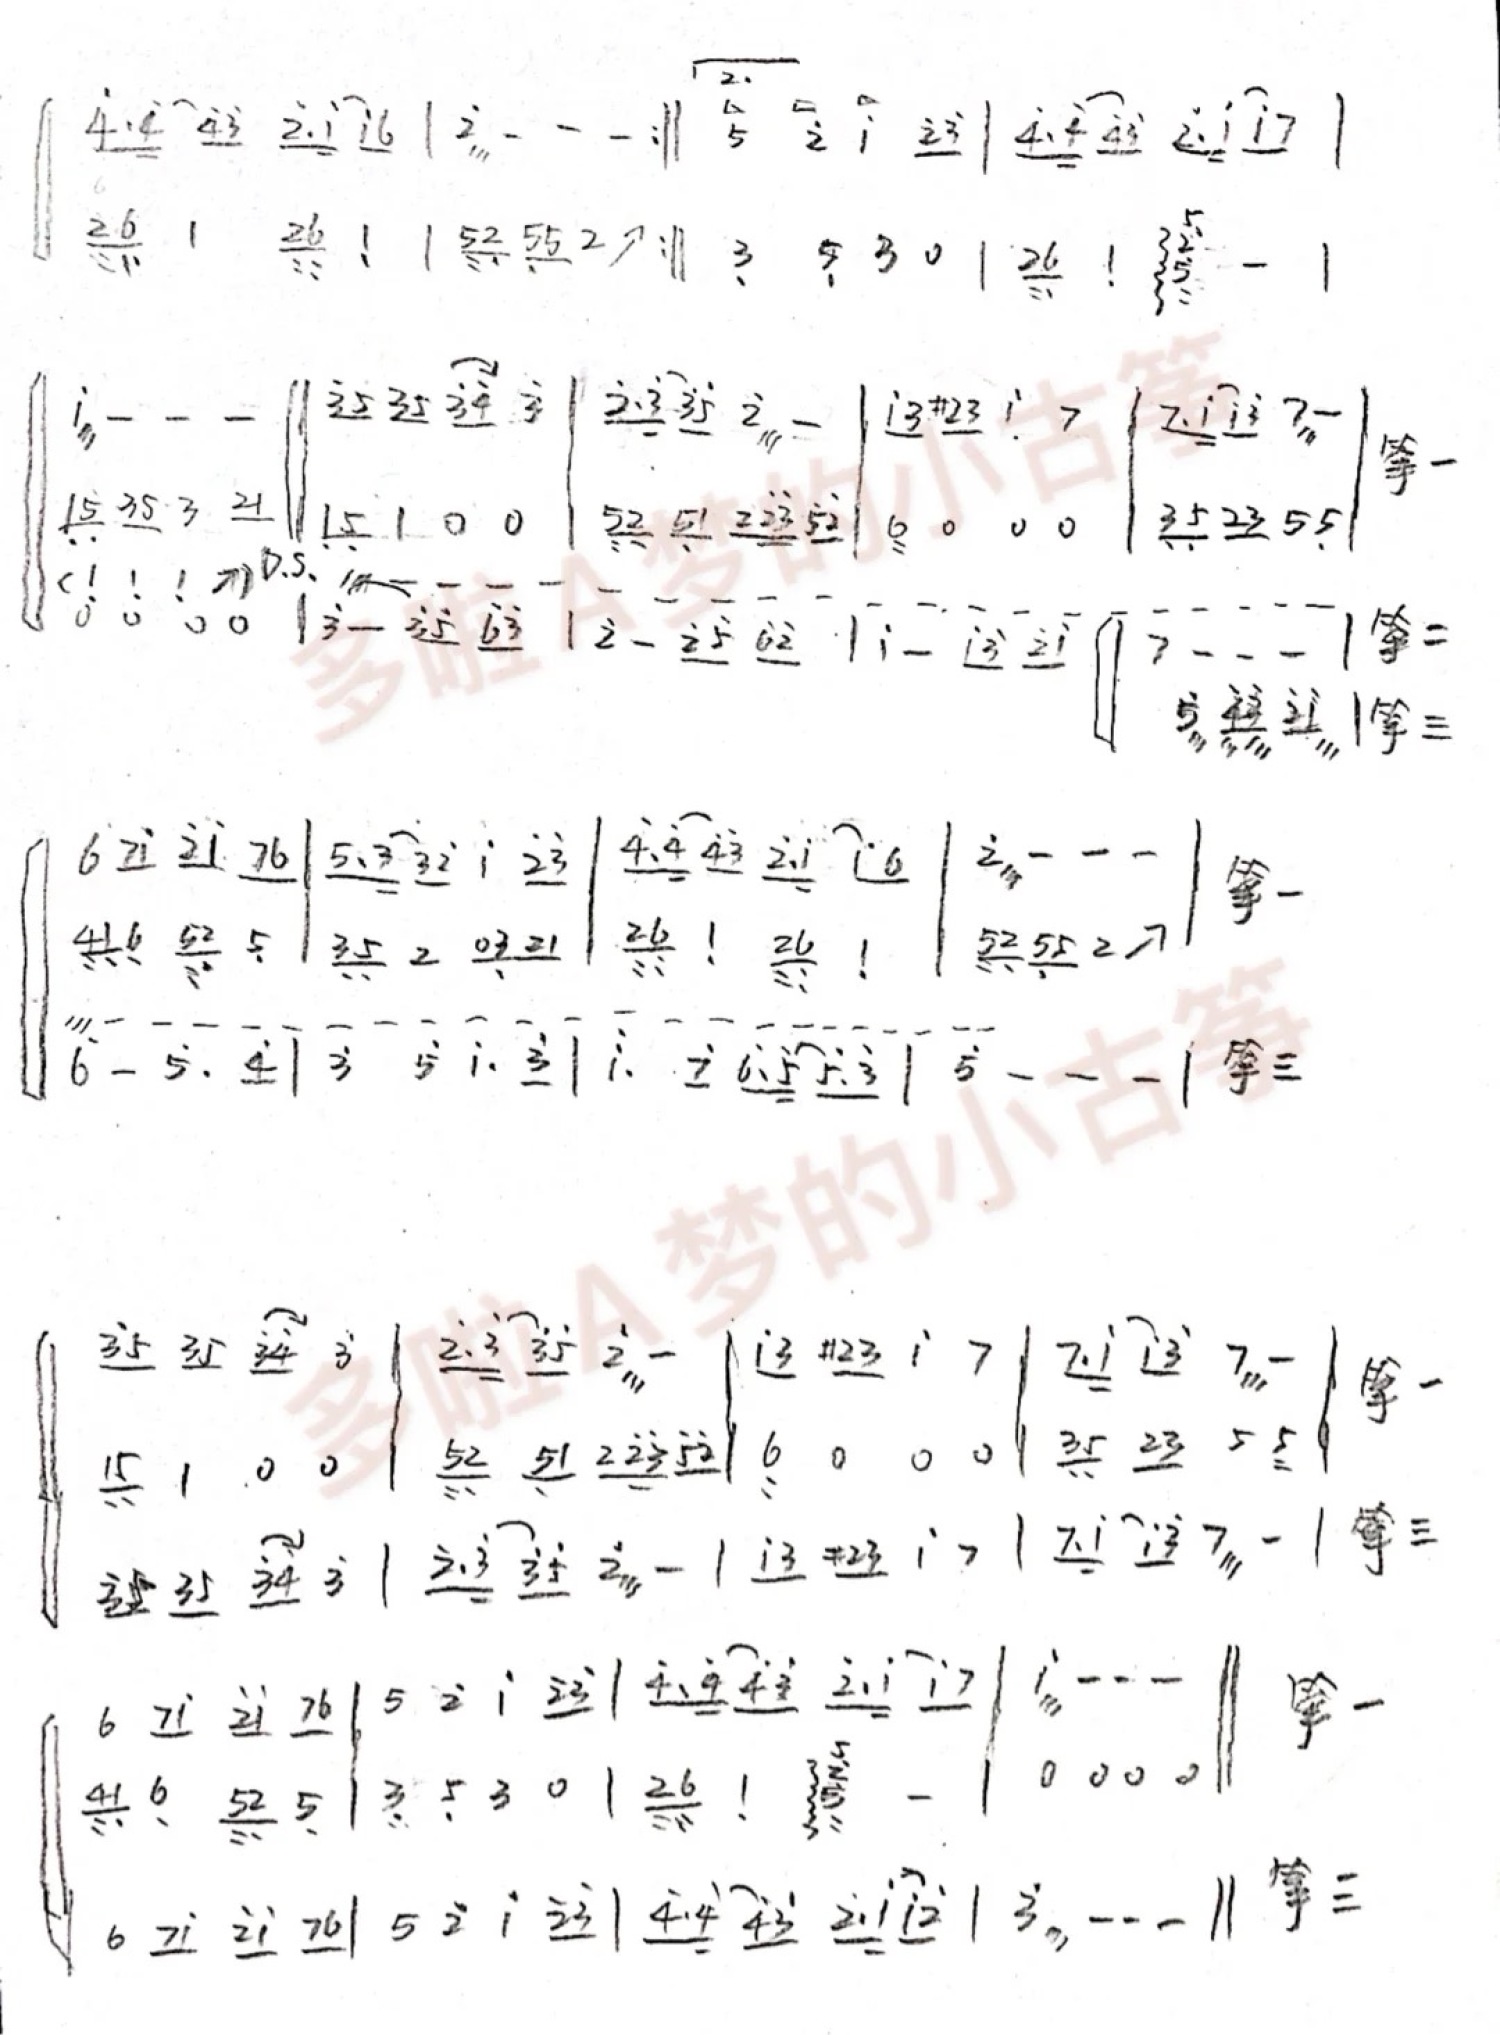 2.
4.4 43 2.1 16 | 2 - - - :‖ 5 2 1 23 | 4.4 43 2.1 17 |
26 1 26 1 | 52 55 2 ↗ :‖ 3 5 3 0 | 26 1 525 - |
1 - - - ‖ 35 35 34 3 | 2.3 35 2 - | 13 #23 1 7 | 7.1 13 7 - | 筝一
15 35 3 21 ‖ 15 1 0 0 | 52 51 2 23 52 | 6 0 0 0 | 35 23 5 5 |
(1 1 1 ↗) D.S.
0 0 0 0 | 3 - 35 63 | 2 - 25 62 | 1 - 13 21 | 7 - - - | 筝二
5 43 21 | 筝三
6 71 21 76 | 5.3 32 1 23 | 4.4 43 2.1 16 | 2 - - - | 筝一
41 6 52 5 | 35 2 03 21 | 26 1 26 1 | 52 55 2 ↗
6 - 5. 4 | 3 5 1. 3 | 1. 7 6.5 5.3 | 5 - - - | 筝三
35 35 34 3 | 2.3 35 2 - | 13 #23 1 7 | 7.1 13 7 - | 筝一
15 1 0 0 | 52 51 2 23 52 | 6 0 0 0 | 35 23 5 5 |
35 35 34 3 | 2.3 35 2 - | 13 #23 1 7 | 7.1 13 7 - | 筝三
6 71 21 76 | 5 2 1 23 | 4.4 43 2.1 17 | 1 - - - ‖ 筝一
41 6 52 5 | 3 5 3 0 | 26 1 525 - | 0 0 0 0 ‖
6 71 21 76 | 5 2 1 23 | 4.4 43 2.1 12 | 3 - - - ‖ 筝三
多啦A梦的小古筝
多啦A梦的小古筝